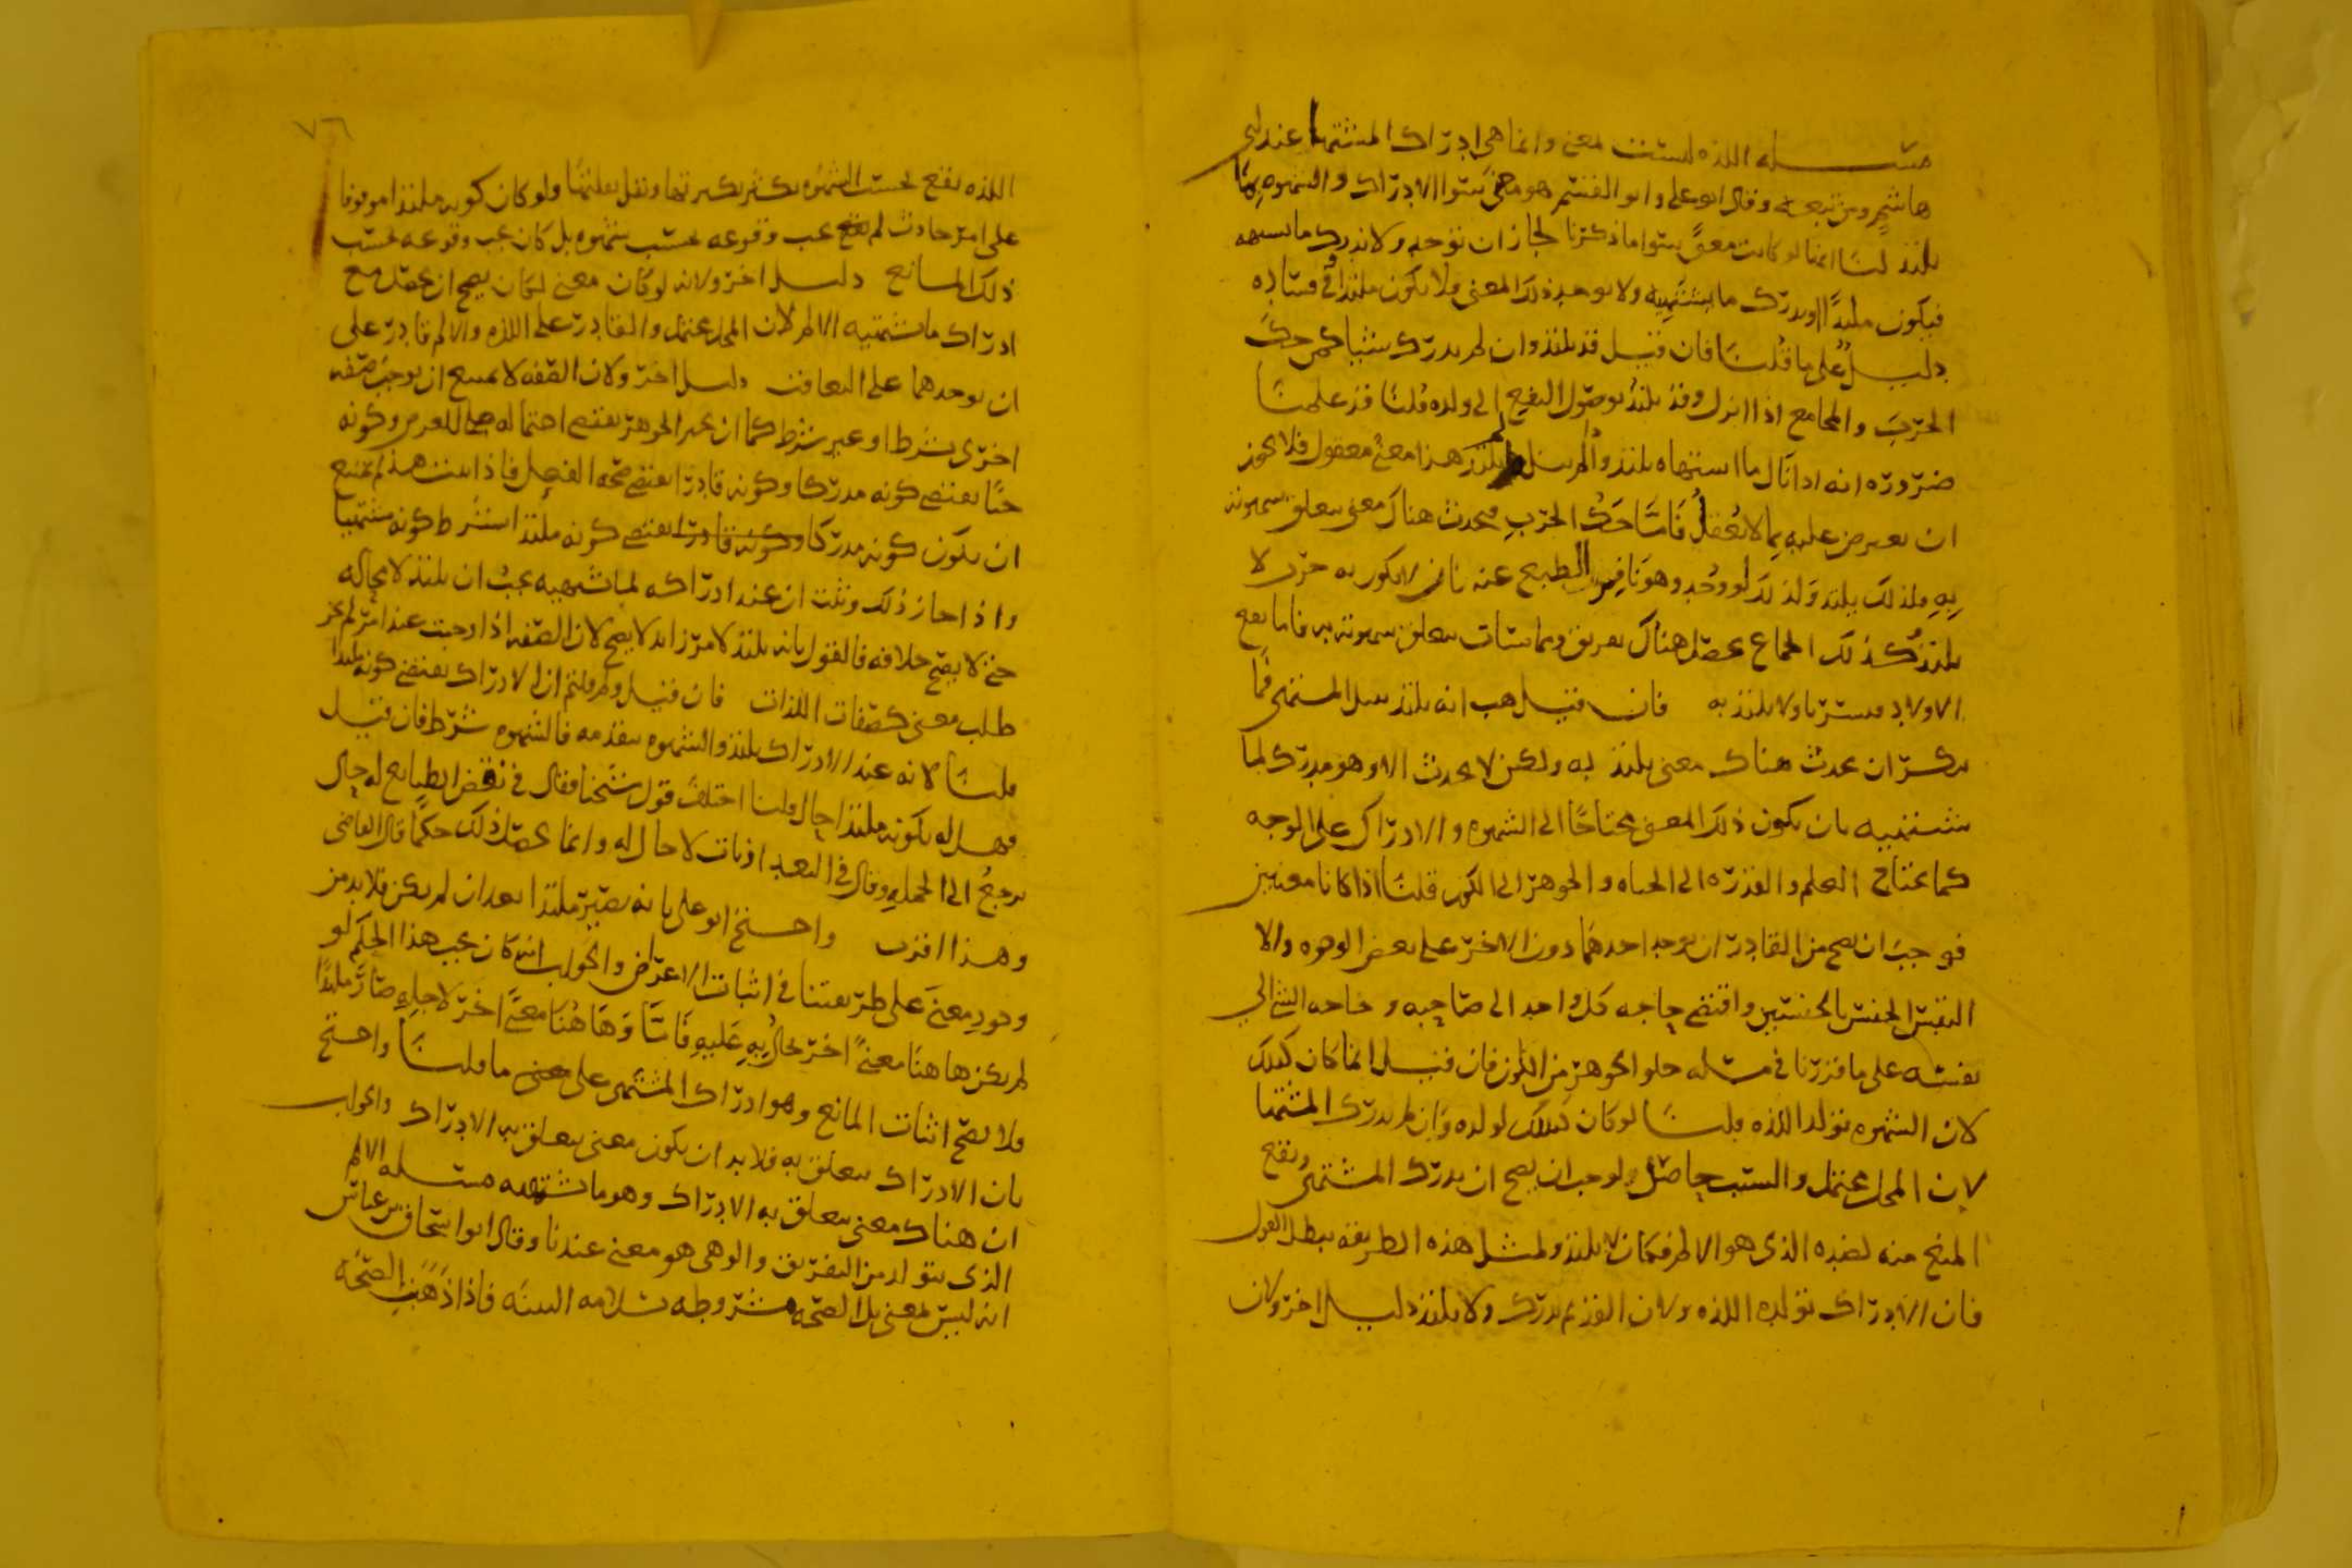 مسئله اللذه ليست بمعنى وانما هي ادراك المشتها عند ابي
هاشم ومن تبعه وقال ابو علي وابو القسم هو معنى سوا الادراك والشهوه بها
يلتذ لنا انها لو كانت معنى سوا ما ذكرنا لجاز ان نوجد ولا ندرك ما نشتهيه
فيكون ملتذا او يدرك ما يشتهيه ولا يوجد ذلك المعنى فلا يكون ملتذا وفي فساده
دليل على ما قلنا فان قيل قد يلتذ وان لم يدرك شيا كمن حك
الجرب والمجامع اذا انزل وقد يلتذ بوصول النفع الى ولده قلنا قد علمنا
ضروره انه اذا نال ما اشتهاه يلتذ واذا لم ينل لم يلتذ هذا معنى معقول فلا يجوز
ان يعترض عليه بما لا يعقل فاما حك الجرب فيحدث هناك معنى يتعلق شهوته
به فلذلك يلتذ ولذلك لو وجد وهو نافر الطبع عنه بان لا يكون به جرب لا
يلتذ كذلك الجماع يحصل هناك تفريق ومماسات يتعلق شهوته به فاما نفع
الاولاد فيسر بها ولا يلتذ به فان قيل هب انه يلتذ بنيل المشتهى فما
ينكر ان يحدث هناك معنى يلتذ به ولكن لا يحدث الا وهو مدرك لما
يشتهيه بان يكون ذلك المعنى محتاجا الى الشهوه والادراك على الوجه
كما يحتاج العلم والقدره الى الحياه والجوهر الى الكون قلنا اذا كانا معنيين
فوجب ان يصح من القادر ان يوجد احدهما دون الاخر على بعض الوجوه والا
التبس الجنس بالجنسين واقتضى حاجه كل واحد الى صاحبه وحاجه الشي الى
نفسه على ما قررنا في مسئله خلو الجوهر من اللون فان قيل انما كان كذلك
لان الشهوه تولد اللذه قلنا لو كان كذلك لولده وان لم يدرك المشتها
لان المحل محتمل والسبب حاصل ولوجب ان يصح ان يدرك المشتهى ويقع
المنع منه لضده الذي هو الالم فكان لا يلتذ ولمثل هذه الطريقه يبطل القول
فان الادراك تولد اللذه ولان القديم يدرك ولا يلتذ دليل اخر ولان
٧٦
اللذه تقع بحسب الشهوه تكثر بكثرتها وتقل بقلتها ولو كان كونه ملتذا موقوفا
على امر حادث لم يجب وقوعه بحسب شهوه بل كان يجب وقوعه بحسب
ذلك المانع دليل اخر ولانه لو كان معنى لكان يصح ان يحصل مع
ادراك ما يشتهيه الالم لان المحل محتمل والقادر على اللذه والالم قادر على
ان يوجدهما على التعاقب دليل اخر ولان الصفه لا يمتنع ان توجب صفه
اخرى بشرط او غير شرط كما ان تحيز الجوهر يقتضي احتماله للعرض وكونه
حيا يقتضي كونه مدركا وكونه قادرا يقتضي صحه الفعل فاذا ثبت هذا لم يمتنع
ان يكون كونه مدركا وكونه قادرا يقتضي كونه ملتذا بشرط كونه مشتهيا
واذا جاز ذلك وثبت ان عند ادراكه لما يشتهيه يجب ان يلتذ لا محاله
حتى لا يصح خلافه فالقول بانه يلتذ لامر زايد لا يصح لان الصفه اذا وجبت عند امر لم يجز
طلب معنى كصفات الذات فان قيل ولم قلتم ان الادراك يقتضي كونه ملتذا
قلنا لانه عند الادراك يلتذ والشهوه متقدمه فالشهوه شرط فان قيل
فهل له بكونه ملتذا حال قلنا اختلف قول شيخنا فقال في نقض الطبايع له حال
يرجع الى الجمله وقال في البغداذيات لا حال له وانما يحصل ذلك حكما قال القاضي
وهذا اقرب واحتج ابو علي بانه يصير ملتذا بعد ان لم يكن فلا بد من
وجود معنى على طريقتنا في اثبات الاعراض والجواب انه كان يجب هذا الحكم لو
لم يكن هاهنا معنى اخر يحال به عليه فاما وهاهنا معنى اخر لاجله صار ملتذا
فلا يصح اثبات المانع وهو ادراك المشتهى على ما قلنا واحتج
بان الادراك يتعلق به فلا بد ان يكون معنى يتعلق به الادراك والجواب
ان هناك معنى يتعلق به الادراك وهو ما يشتهيه مسئله الالم
الذي يتولد من التفريق والوهى هو معنى عندنا وقال ابو اسحاق بن عياش
انه ليس بمعنى بل الصحه مشروطه بسلامه البنيه فاذا ذهبت الصحه